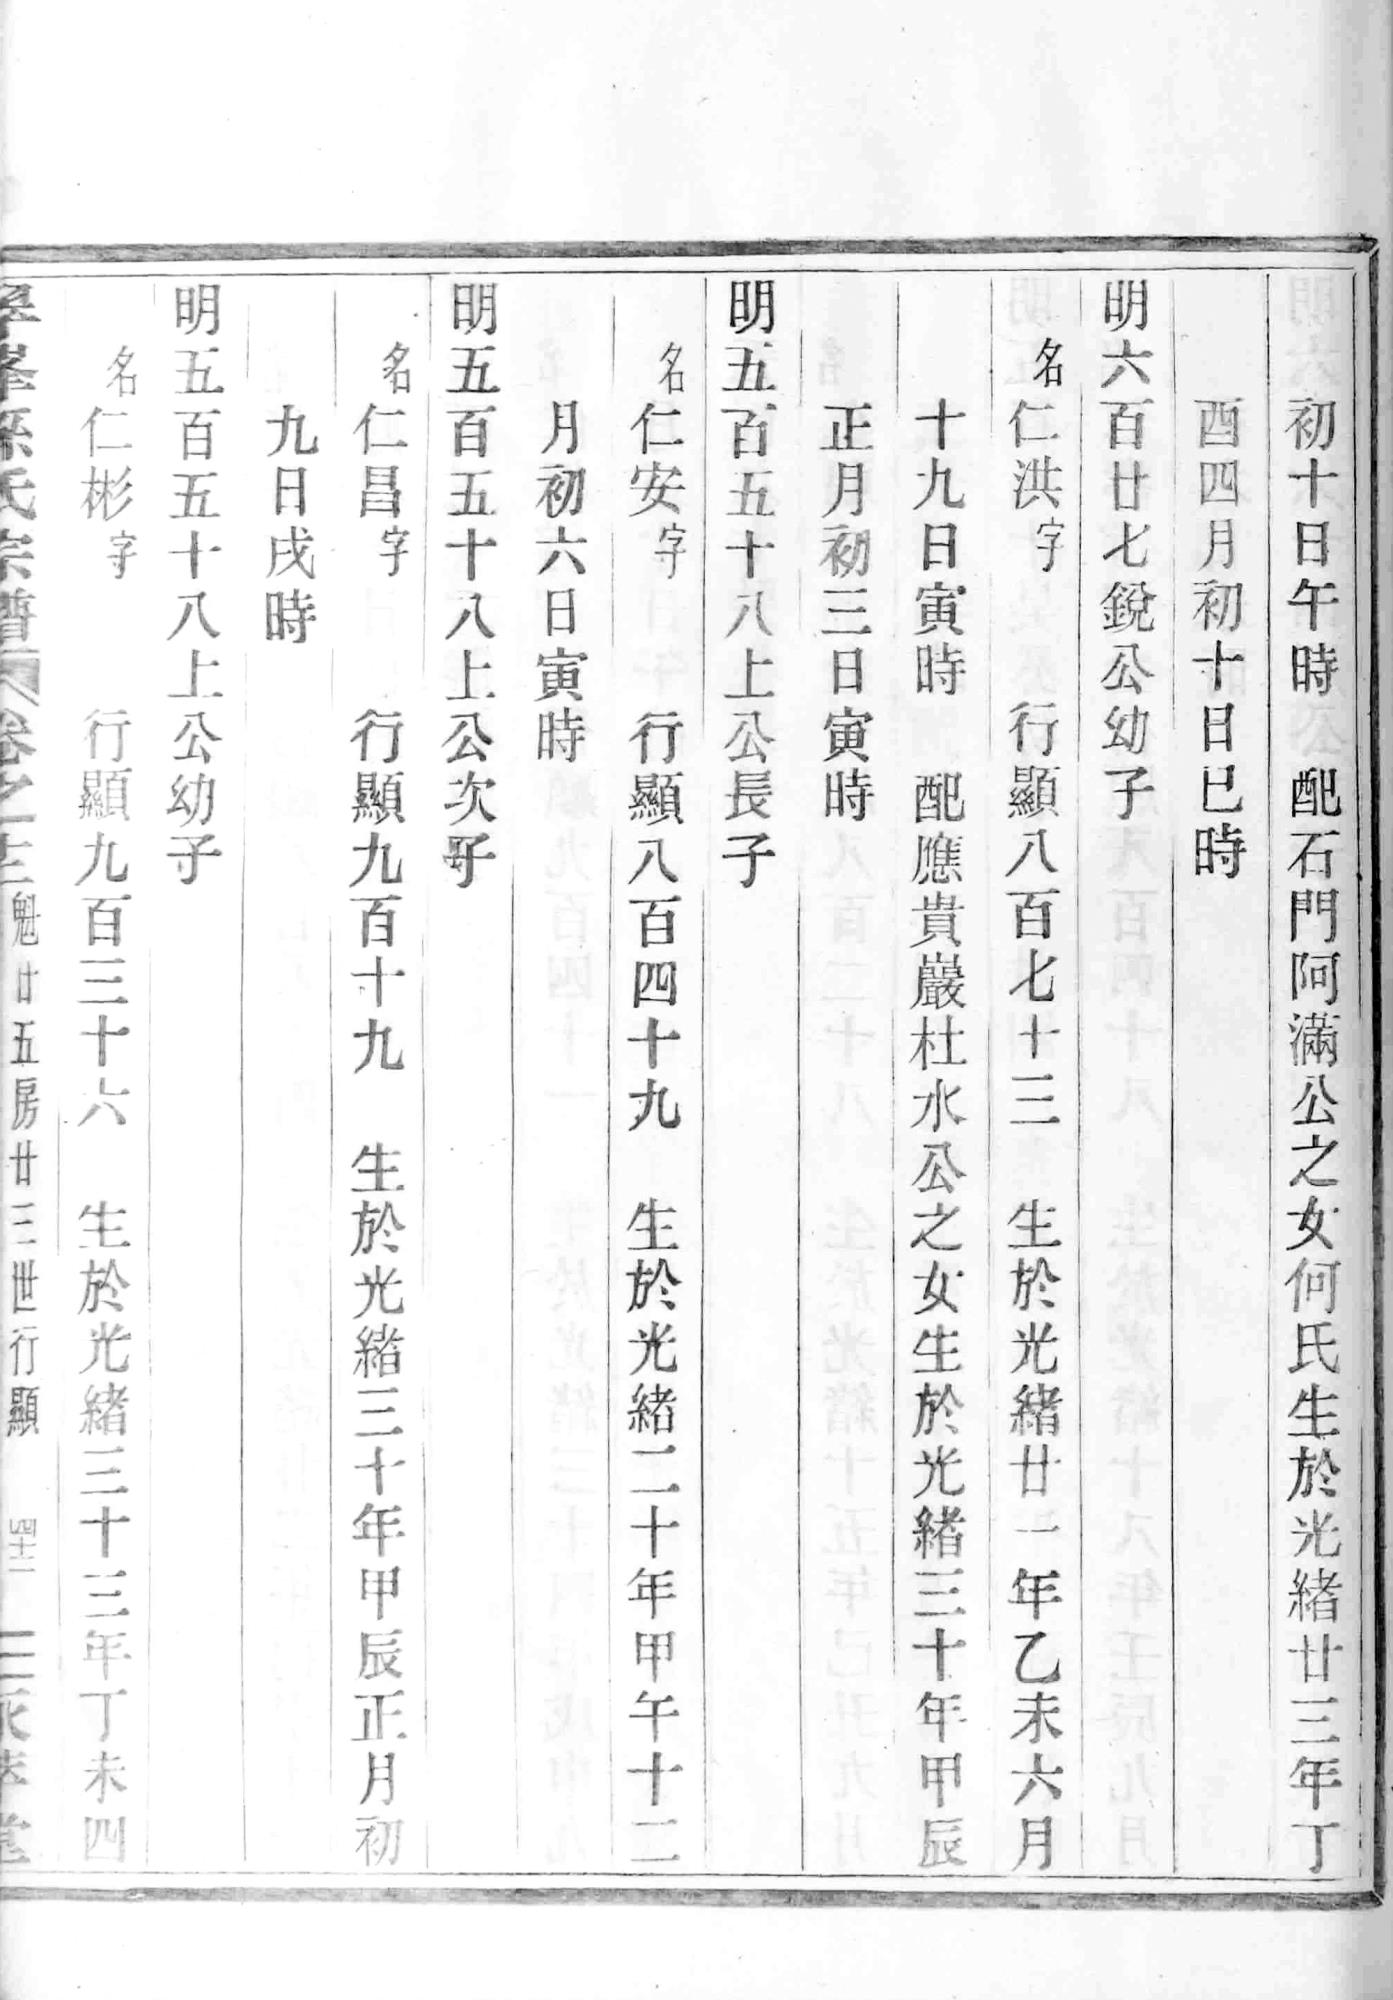 初十日午時　配石門阿滿公之女何氏生於光緒廿三年丁
酉四月初十日巳時
明六百廿七銳公幼子
名仁洪字　行顯八百七十三　生於光緒廿一年乙未六月
十九日寅時　配應貴巖杜水公之女生於光緒三十年甲辰
正月初三日寅時
明五百五十八上公長子
名仁安字　行顯八百四十九　生於光緒二十年甲午十二
月初六日寅時
明五百五十八上公次子
名仁昌字　行顯九百十九　生於光緒三十年甲辰正月初
九日戌時
明五百五十八上公幼子
名仁彬字　行顯九百三十六　生於光緒三十三年丁未四
峯孫氏宗譜　卷之　魁廿五房廿三世行顯　四十三　堂